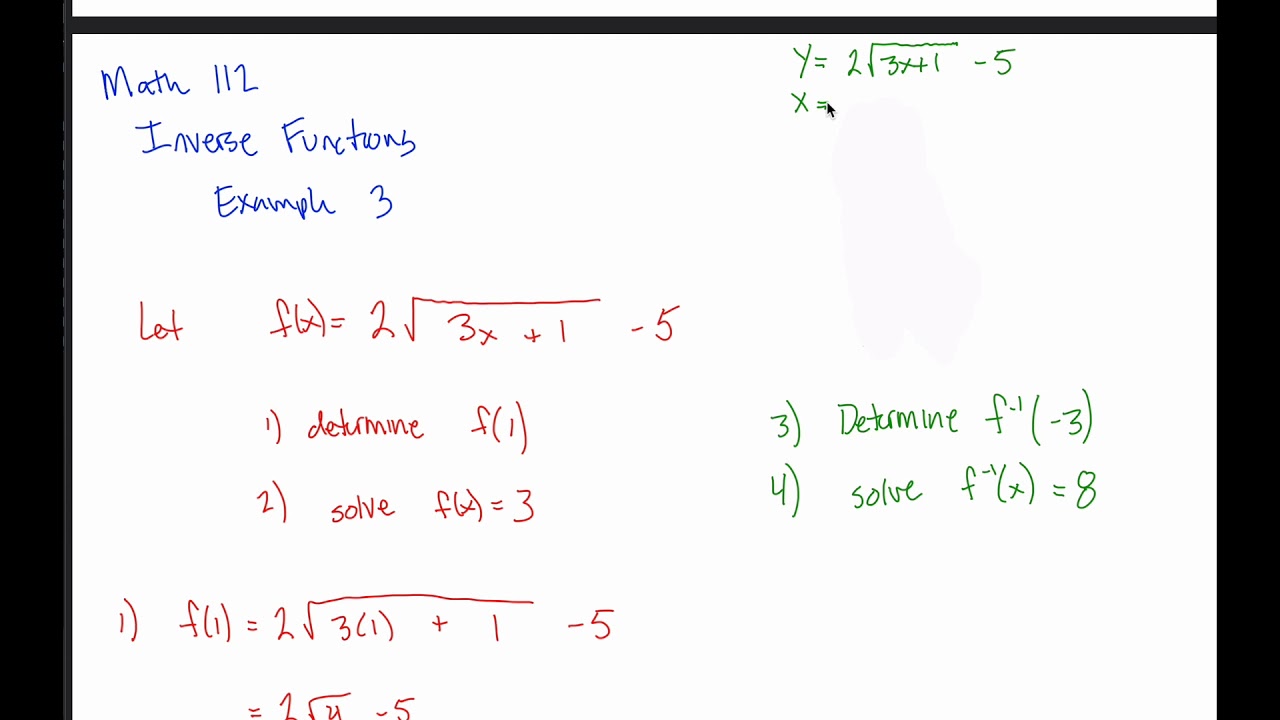 Math 112
Inverse Functions
Example 3
y = 2√(3x+1) - 5
x =
Let f(x) = 2√(3x + 1) - 5
1) determine f(1)
2) solve f(x) = 3
3) Determine f⁻¹(-3)
4) solve f⁻¹(x) = 8
1) f(1) = 2√(3(1) + 1) - 5
= 2√4 - 5